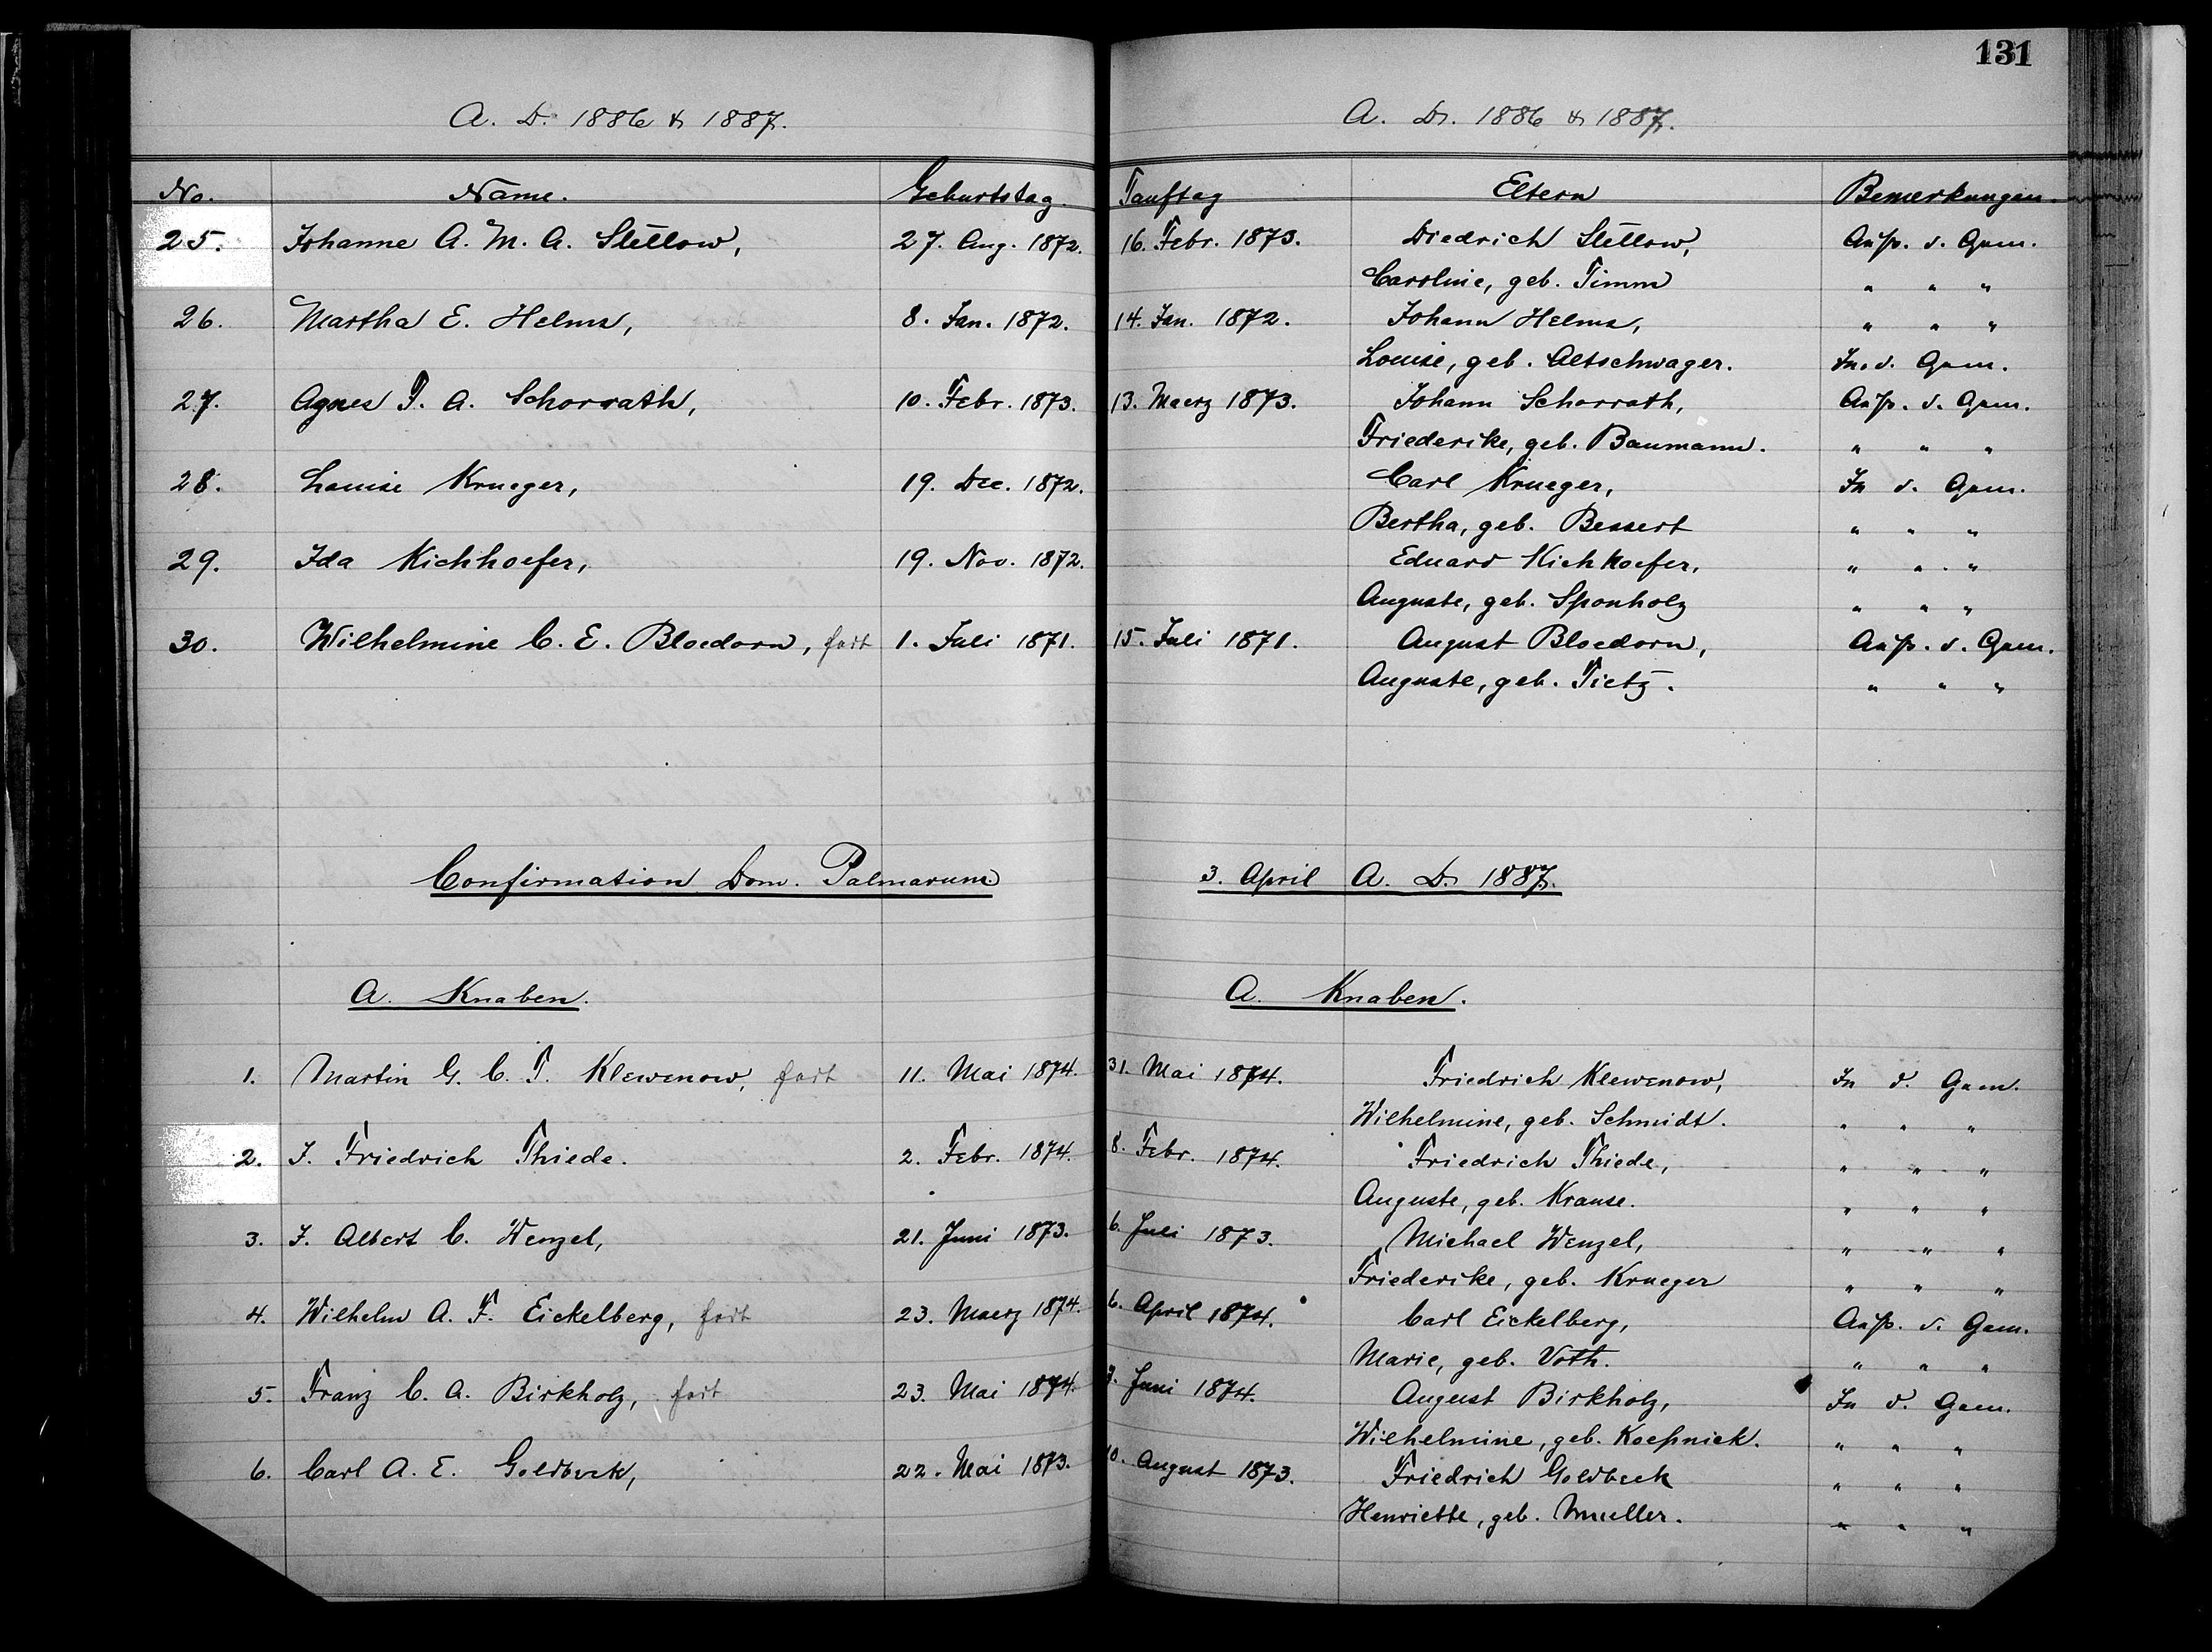 131
A. D. 1886 & 1887. A. D. 1886 & 1887.
No. Name. Geburtstag Tauftag Eltern Bemerkungen.
25. Johanne A. M. A. Stellow, 27. Aug. 1872. 16. Febr. 1873. Diedrich Stellow, Auß. d. Gem.
Caroline, geb. Timm " " "
26. Martha E. Helms, 8. Jan. 1872. 14. Jan. 1872. Johann Helms, " " "
Louise, geb. Altschwager. In. d. Gem.
27. Agnes F. A. Schorrath, 10. Febr. 1873. 13. Maerz 1873. Johann Schorrath, Auß. d. Gem.
Friederike, geb. Baumann. " " "
28. Louise Krueger, 19. Dec. 1872. Carl Krueger, In d. Gem.
Bertha, geb. Bessert " " "
29. Ida Kickhoefer, 19. Nov. 1872. Eduard Kickhoefer, " " "
Auguste, geb. Sponholz " " "
30. Wilhelmine C. E. Bloedorn, fort 1. Juli 1871. 15. Juli 1871. August Bloedorn, Auß. d. Gem.
Auguste, geb. Tietz. " " "
Confirmation Dom. Palmarum. 3. April A. D. 1887.
A. Knaben. A. Knaben.
1. Martin G. C. F. Klewenow, fort 11. Mai 1874. 31. Mai 1874. Friedrich Klewenow, In d. Gem.
Wilhelmine, geb. Schmidt. " " "
2. J. Friedrich Thiede. 2. Febr. 1874. 8. Febr. 1874. Friedrich Thiede, " " "
Auguste, geb. Krause. " " "
3. J. Albert C. Wenzel, 21. Juni 1873. 6. Juli 1873. Michael Wenzel, " " "
Friederike, geb. Krueger " " "
4. Wilhelm A. F. Eickelberg, fort 23. Maerz 1874. 6. April 1874. Carl Eickelberg, Auß. d. Gem.
Marie, geb. Voth. " " "
5. Franz C. A. Birkholz, fort 23. Mai 1874. 7. Juni 1874. August Birkholz, In d. Gem.
Wilhelmine, geb. Koepnick. " " "
6. Carl A. E. Goldbeck, 22. Mai 1873. 10. August 1873. Friedrich Goldbeck " " "
Henriette, geb. Mueller. " " "